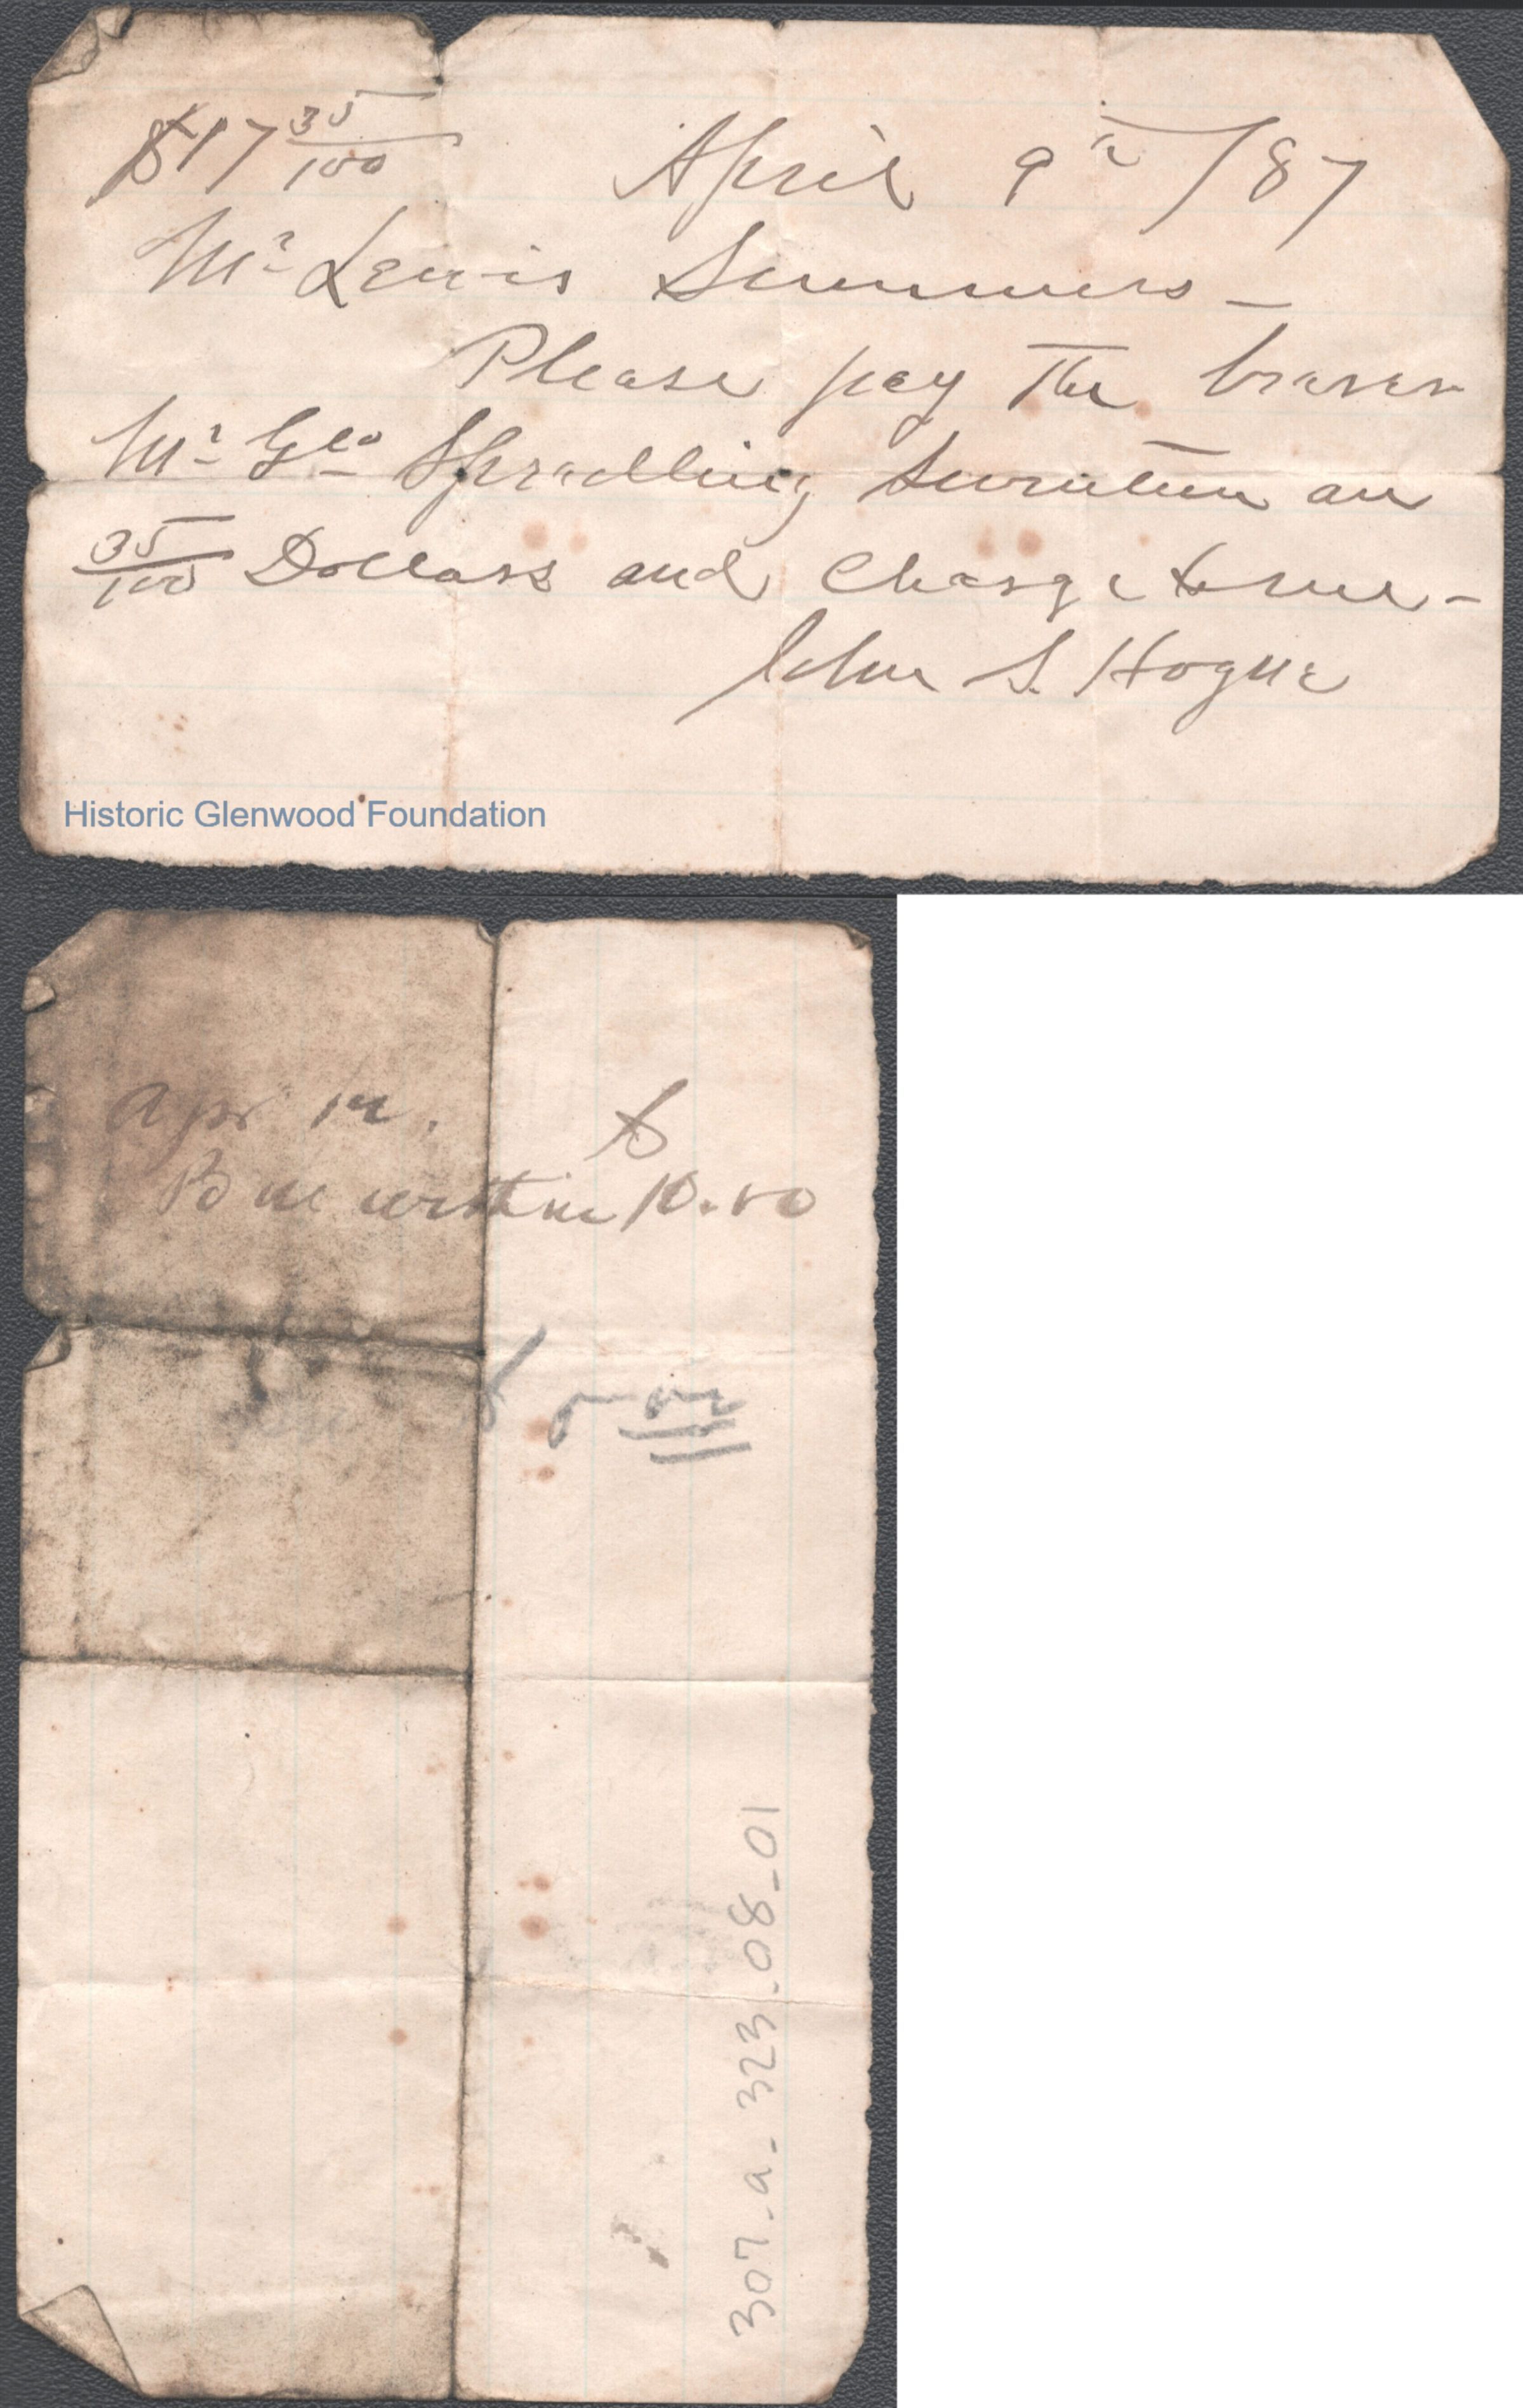 $17 35/100 April 9th /87
Mr Lewis Summers -
Please pay The bearer
Mr Geo Spradling Seventeen an
35/100 Dollars and Charge to me -
John S. Hogue
Historic Glenwood Foundation
Apr 12. $
By me within 10.50
307-a-323-08-01